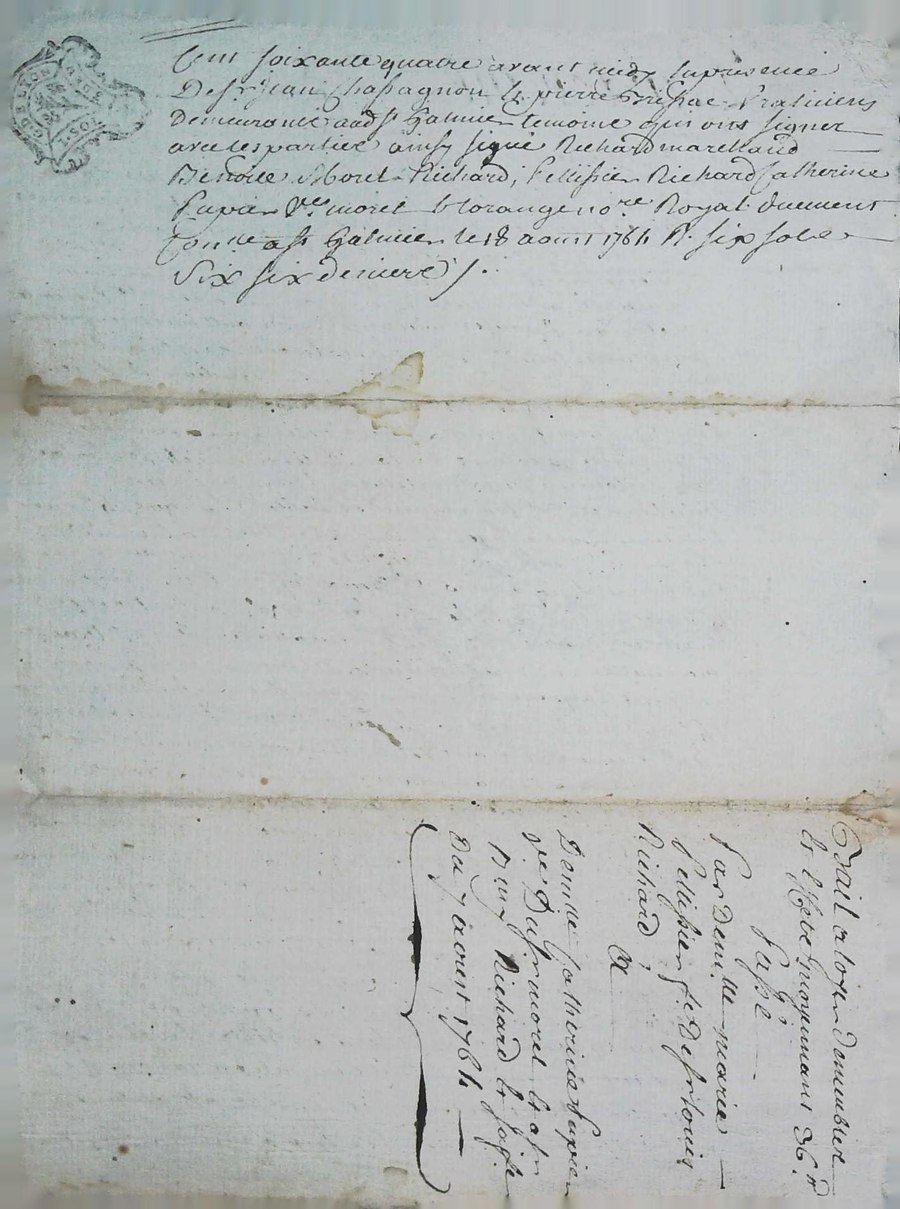 Cent soixante quatre avant midy en presence
De Sr. jean Chassagnon & pierre praticiens
Demeurants aud st Galmier temoins qui ont signer
avec les parties ainsy signé Richard marchand
Benoite Moret Richard, Pellissier Richard Catherine
Papier Ve. moret & lorange nore. Royal Duement
Conlle a St Galmier le 18 aoust 1764 R. six sols
six six deniers
Bail a loyer De meubles
& moyennant 36.
Passé
Par Demlle marie
Pellissier fe. De Sr louis
Richard,
A
Demlle Catherine Papier
Ve. Du Sr moret & a Sr
Richard
Du 7 aoust 1764